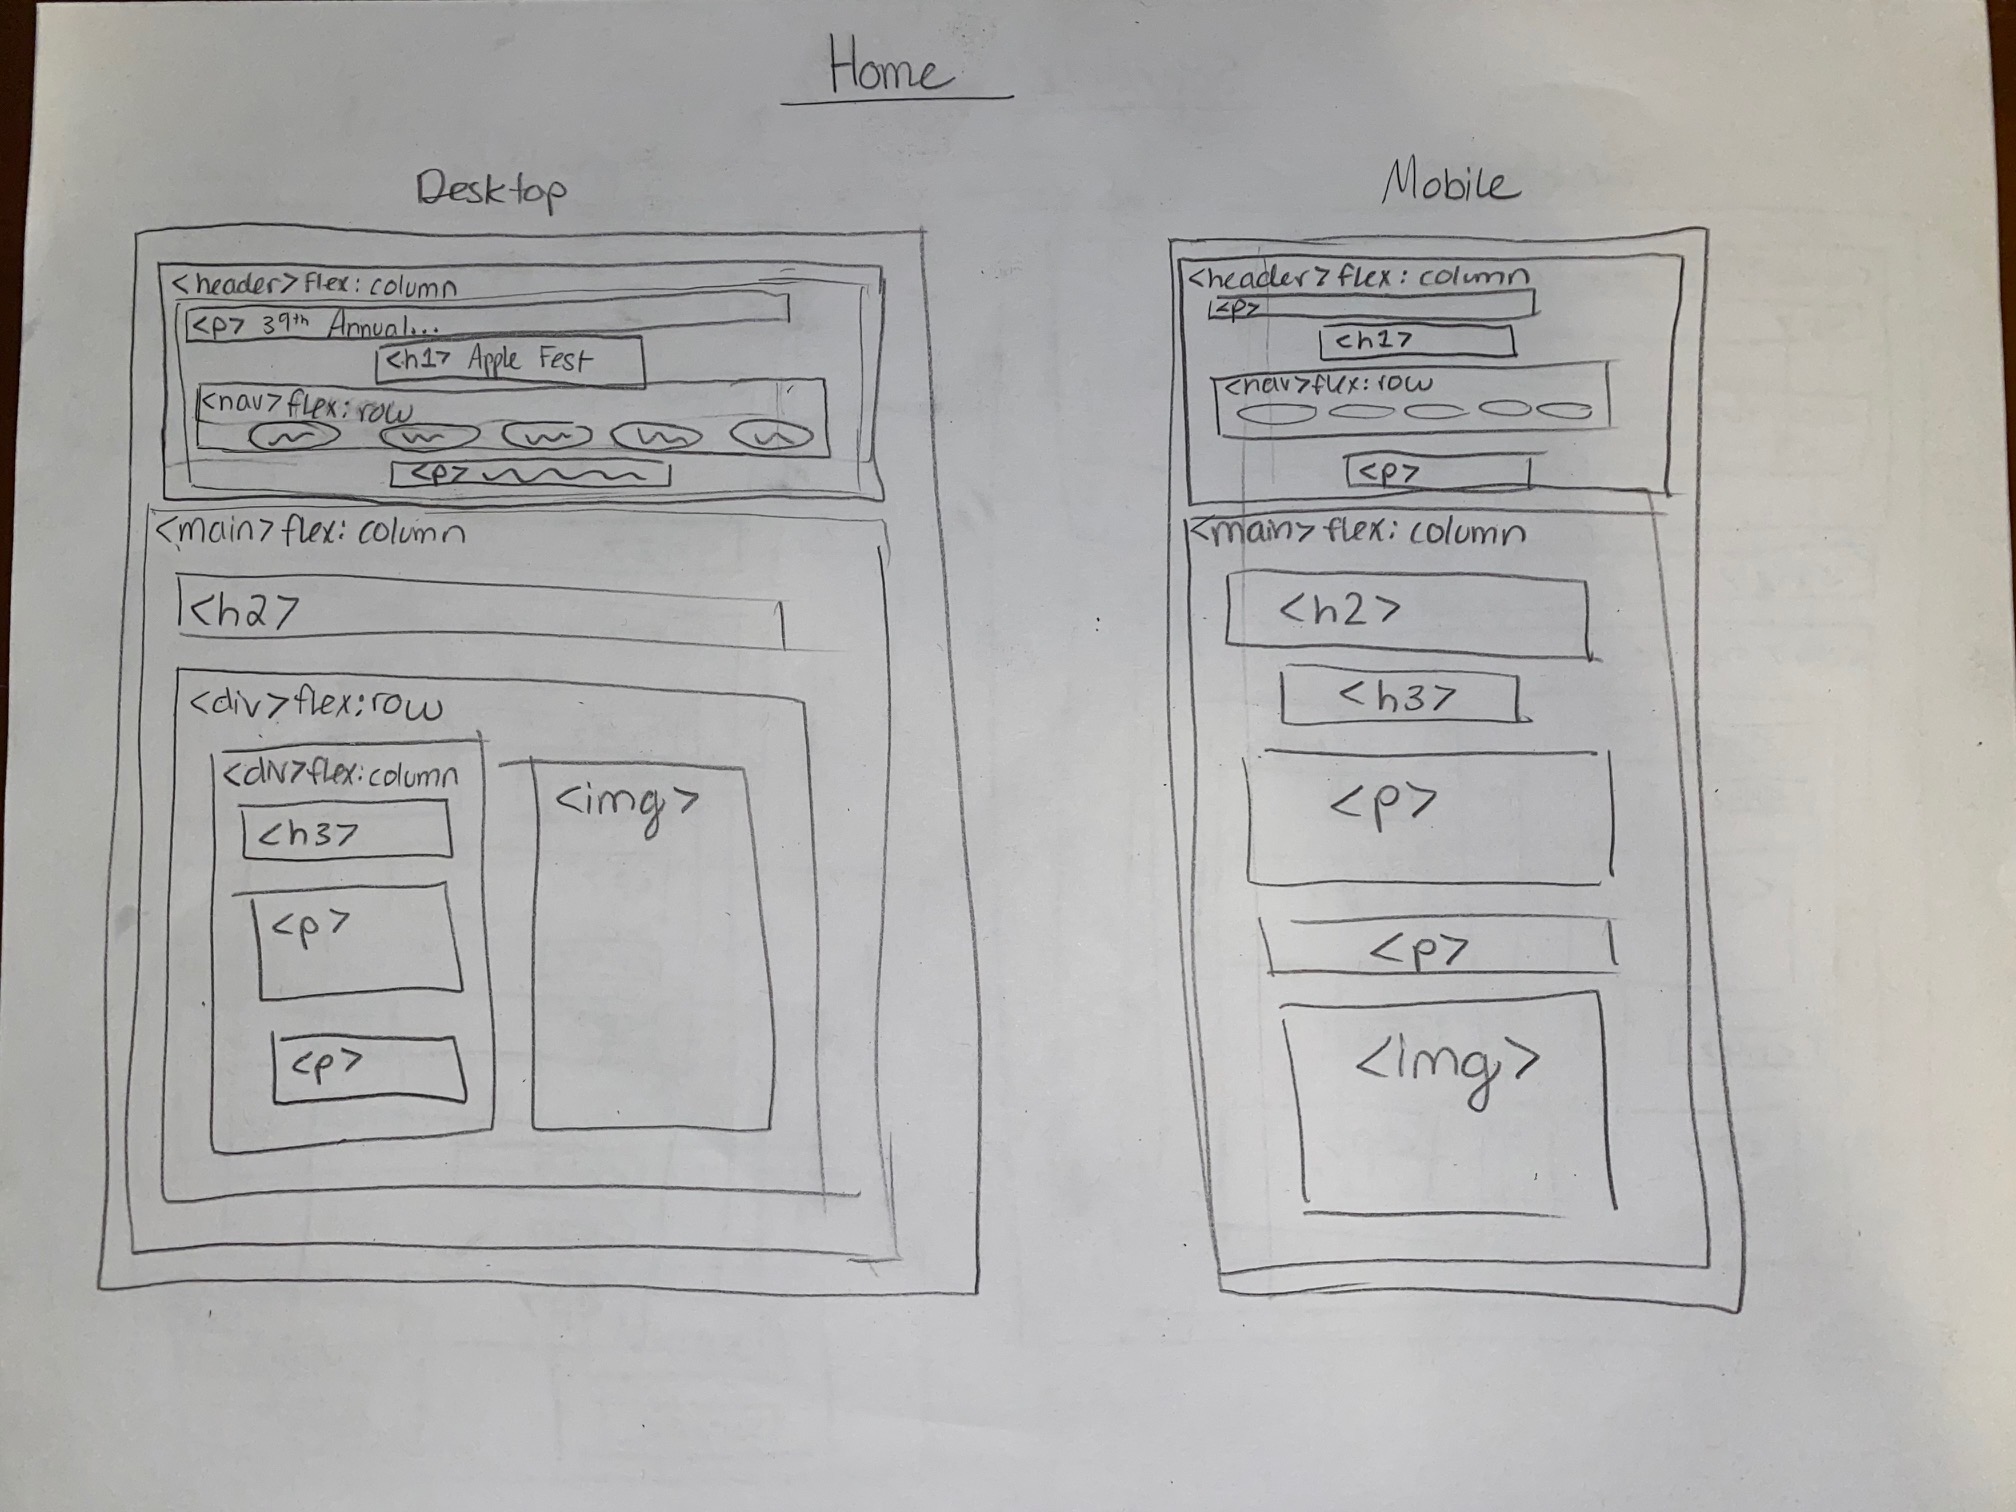 Home
Desktop
<header> flex: column
<p> 39th Annual...
<h1> Apple Fest
<nav> flex: row
<p>
<main> flex: column
<h2>
<div> flex: row
<div> flex: column
<h3>
<p>
<p>
<img>
Mobile
<header> flex: column
<p>
<h1>
<nav> flex: row
<p>
<main> flex: column
<h2>
<h3>
<p>
<p>
<img>